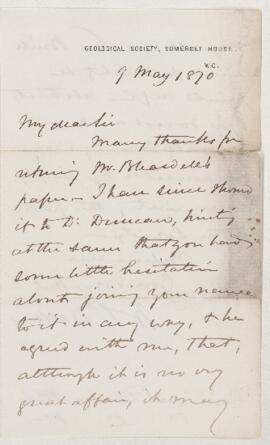 GEOLOGICAL SOCIETY, SOMERSET HOUSE.
W.C.
9 May 1870
My dear Sir
Many thanks for
Mr.
paper – I have since showed
it to Dr. Duncan, hinting
at the same that you had
some little hesitation
about joining your name
to it in any way, & he
agreed with me, that,
although it is no very
great affair, it may